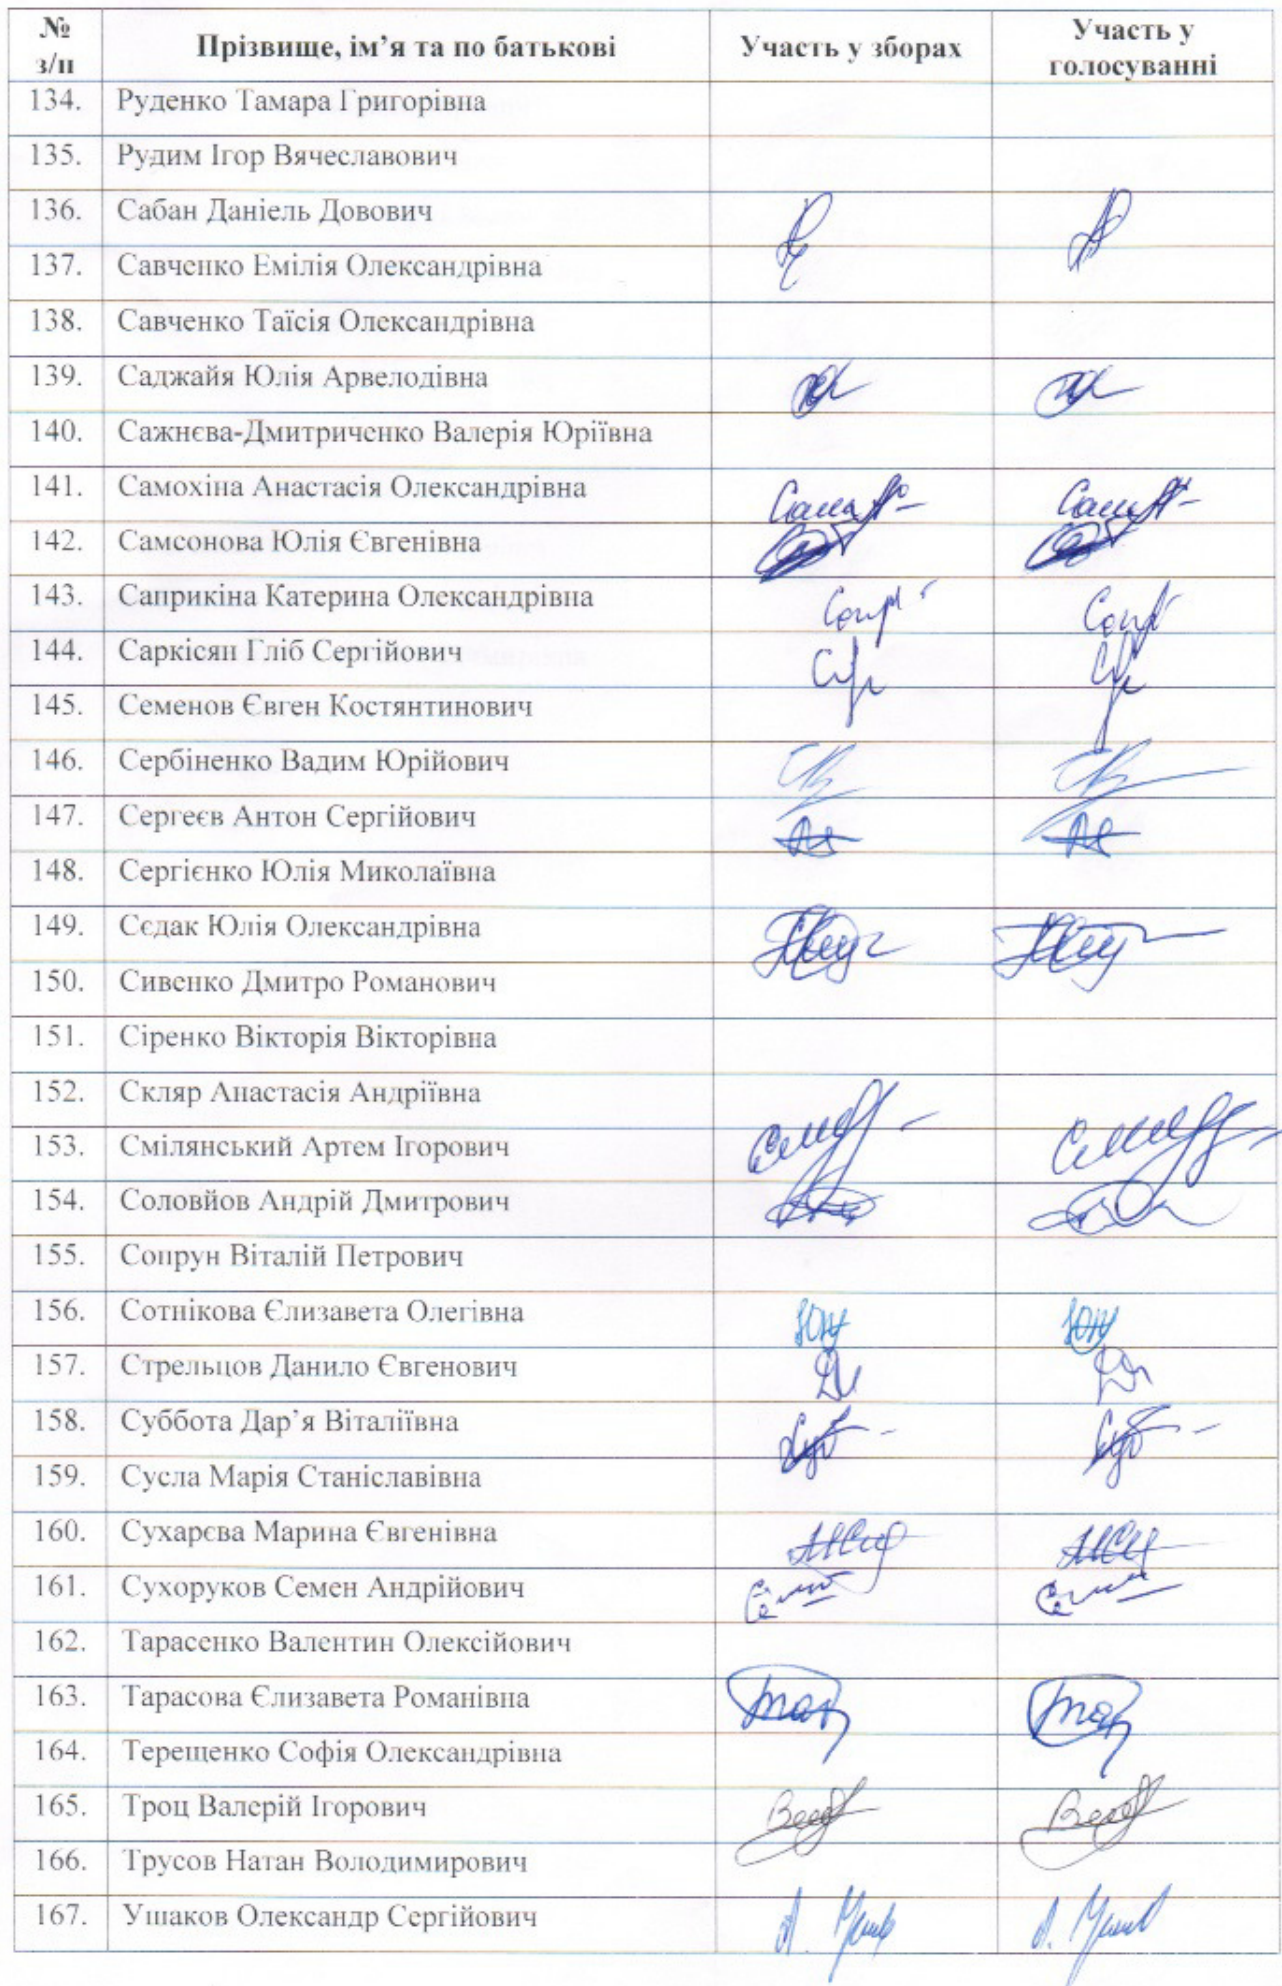 № з/п Прізвище, ім’я та по батькові Участь у зборах Участь у голосуванні
134. Руденко Тамара Григорівна
135. Рудим Ігор Вячеславович
136. Сабан Даніель Довович
137. Савченко Емілія Олександрівна
138. Савченко Таїсія Олександрівна
139. Саджайя Юлія Арвелодівна
140. Сажнєва-Дмитриченко Валерія Юріївна
141. Самохіна Анастасія Олександрівна
142. Самсонова Юлія Євгенівна
143. Саприкіна Катерина Олександрівна
144. Саркісян Гліб Сергійович
145. Семенов Євген Костянтинович
146. Сербіненко Вадим Юрійович
147. Сергеєв Антон Сергійович
148. Сергієнко Юлія Миколаївна
149. Сєдак Юлія Олександрівна
150. Сивенко Дмитро Романович
151. Сіренко Вікторія Вікторівна
152. Скляр Анастасія Андріївна
153. Смілянський Артем Ігорович
154. Соловйов Андрій Дмитрович
155. Сопрун Віталій Петрович
156. Сотнікова Єлизавета Олегівна
157. Стрельцов Данило Євгенович
158. Суббота Дар’я Віталіївна
159. Сусла Марія Станіславівна
160. Сухарєва Марина Євгенівна
161. Сухоруков Семен Андрійович
162. Тарасенко Валентин Олексійович
163. Тарасова Єлизавета Романівна
164. Терещенко Софія Олександрівна
165. Троц Валерій Ігорович
166. Трусов Натан Володимирович
167. Ушаков Олександр Сергійович